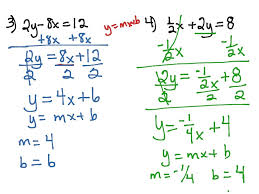 3) 2y-8x=12
+8x +8x
2y = 8x+12
2 2 2
y = 4x+6
y = mx+b
m = 4
b = 6
y=mx+b
4) 1/2x+2y=8
-1/2x -1/2x
2y = -1/2x+8
2 2 2
y = -1/4x+4
y = mx+b
m=-1/4 b=4